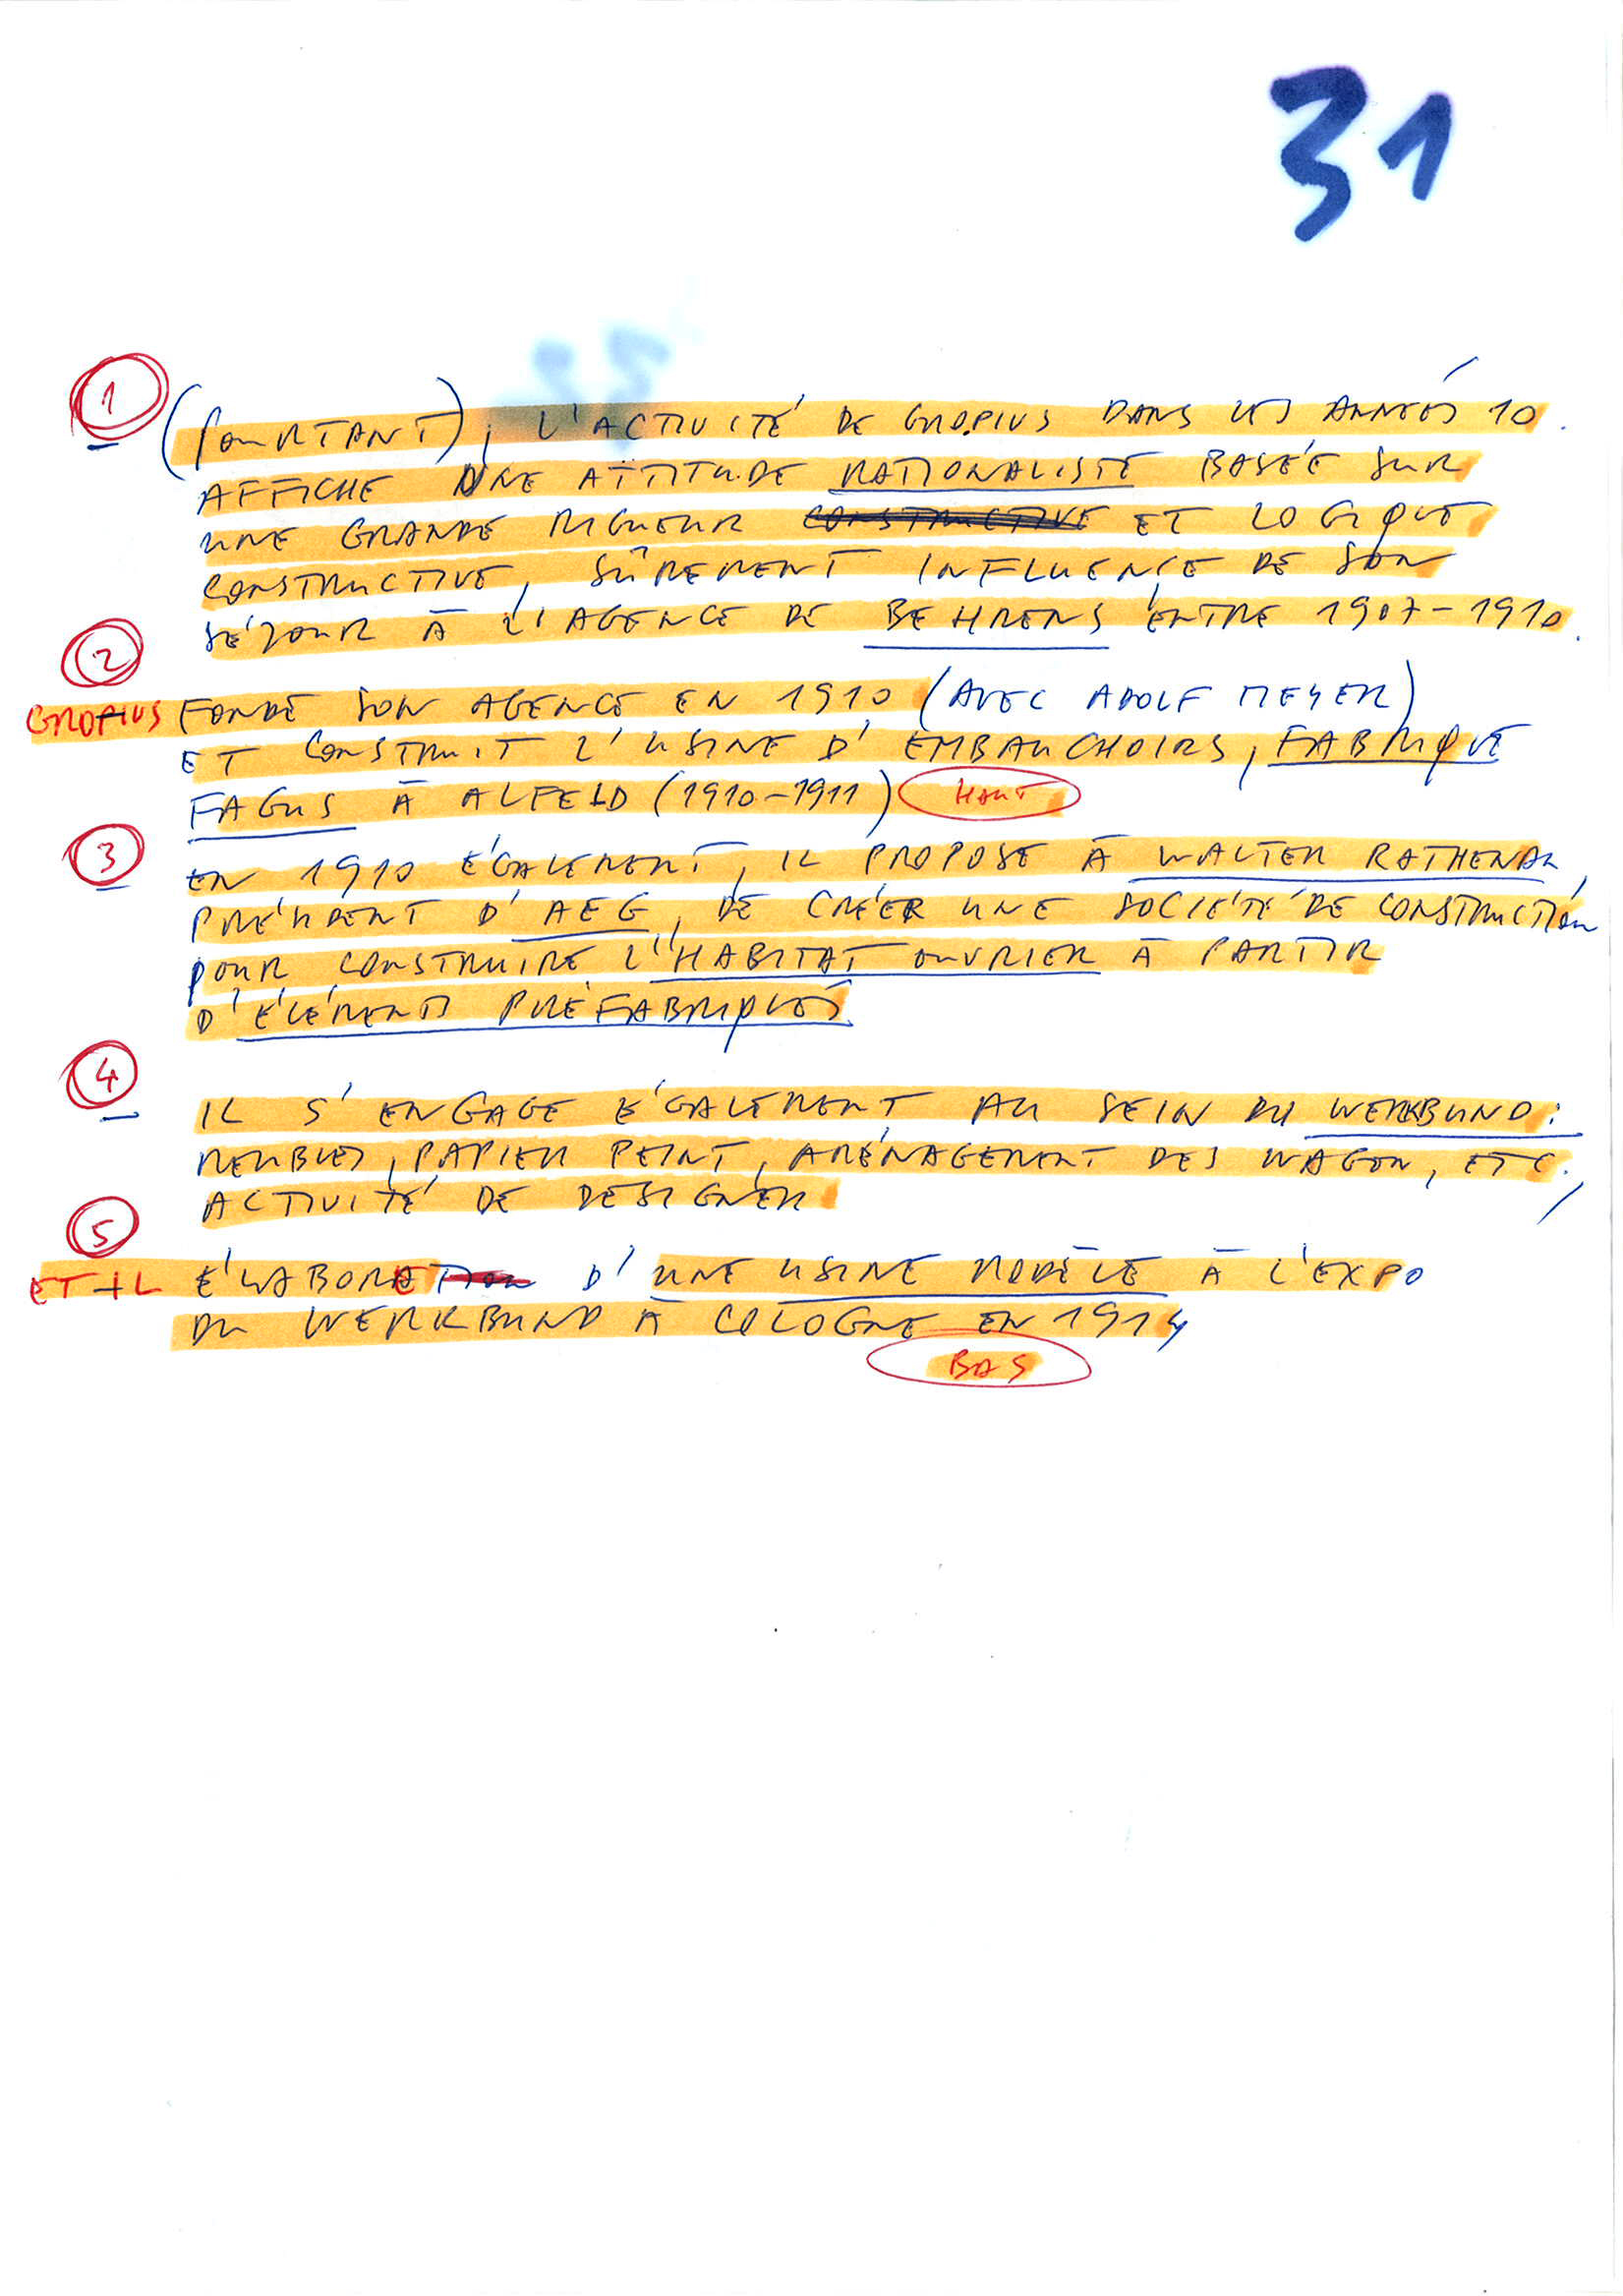 31
1
(POURTANT), L'ACTIVITÉ DE GROPIUS DANS LES ANNÉES 10
AFFICHE UNE ATTITUDE RATIONALISTE BASÉE SUR
UNE GRANDE RIGUEUR CONSTRUCTIVE ET LOGIQUE
CONSTRUCTIVE, SÛREMENT INFLUENCE DE SON
SÉJOUR À L'AGENCE DE BEHRENS ENTRE 1907-1910.
2
GROPIUS FONDE SON AGENCE EN 1910 (AVEC ADOLF MEYER)
ET CONSTRUIT L'USINE D'EMBAUCHOIRS, FABRIQUE
FAGUS À ALFELD (1910-1911) HAUT
3
EN 1910 ÉGALEMENT, IL PROPOSE À WALTER RATHENAU,
PRÉSIDENT D'AEG, DE CRÉER UNE SOCIÉTÉ DE CONSTRUCTION
POUR CONSTRUIRE L'HABITAT OUVRIER À PARTIR
D'ÉLÉMENTS PRÉFABRIQUÉS.
4
IL S'ENGAGE ÉGALEMENT AU SEIN DU WERKBUND:
MEUBLES, PAPIER PEINT, AMÉNAGEMENT DES WAGON, ETC.
ACTIVITÉ DE DESIGNER
5
ET IL ÉLABORE D'UNE USINE MODÈLE À L'EXPO
DU WERKBUND À COLOGNE EN 1914
BAS